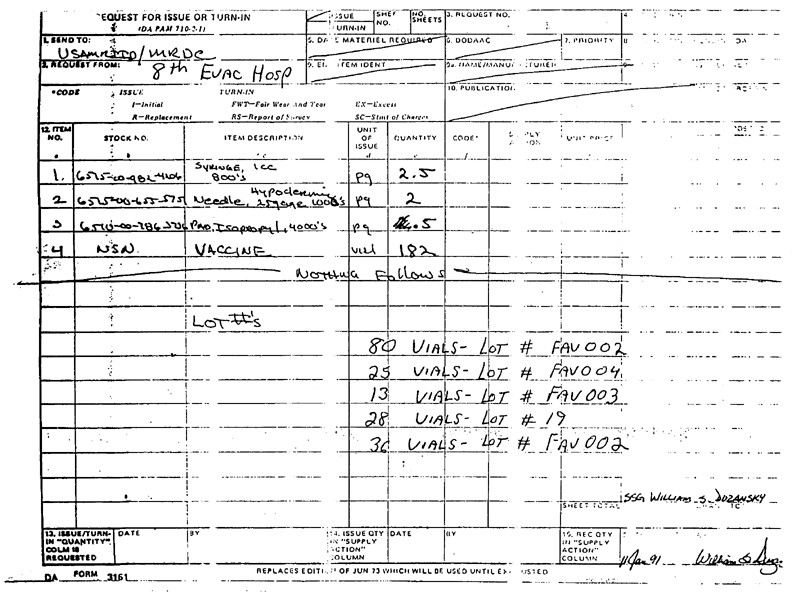 REQUEST FOR ISSUE OR TURN-IN
(DA PAM 710-2-1)
ISSUE
TURN-IN
SHEET NO.
NO. SHEETS
3. REQUEST NO.
4
1. SEND TO:
USAMRIID/MRDC
5. DATE MATERIEL REQUIRED
6. DODAAC
7. PRIORITY
8
2. REQUEST FROM:
8th EVAC HOSP
9. END ITEM IDENT
9a. NAME/MANUFACTURER
*CODE
ISSUE
I—Initial
R—Replacement
TURN-IN
FWT—Fair Wear And Tear
RS—Report of Survey
EX—Excess
SC—Stmt of Charges
10. PUBLICATION
12. ITEM NO.
STOCK NO.
ITEM DESCRIPTION
UNIT OF ISSUE
QUANTITY
CODE*
SUPPLY ACTION
UNIT PRICE
a b c d e f
1. Syringe, 1cc 800's pg 2.5
2 Needle, Hypodermic, 25gauge 1000's pg 2
3 Pad, Isopropyl, 4000's pg .5
4 NSN. VACCINE vial 182
Nothing Follows
LOT #'s
80 VIALS- LOT # FAV002
25 VIALS- LOT # FAV004
13 VIALS- LOT # FAV003
28 VIALS- LOT # 19
36 VIALS- LOT # FAV002
SSG WILLIAM S. DUZANSKY
SHEET TOTAL
13. ISSUE/TURN-IN "QUANTITY" COLM IS REQUESTED
DATE
BY
14. ISSUE QTY IN "SUPPLY ACTION" COLUMN
DATE
BY
15. REC QTY IN "SUPPLY ACTION" COLUMN
11 Jan 91
William S
DA FORM 3161
REPLACES EDITION OF JUN 73 WHICH WILL BE USED UNTIL EXHAUSTED